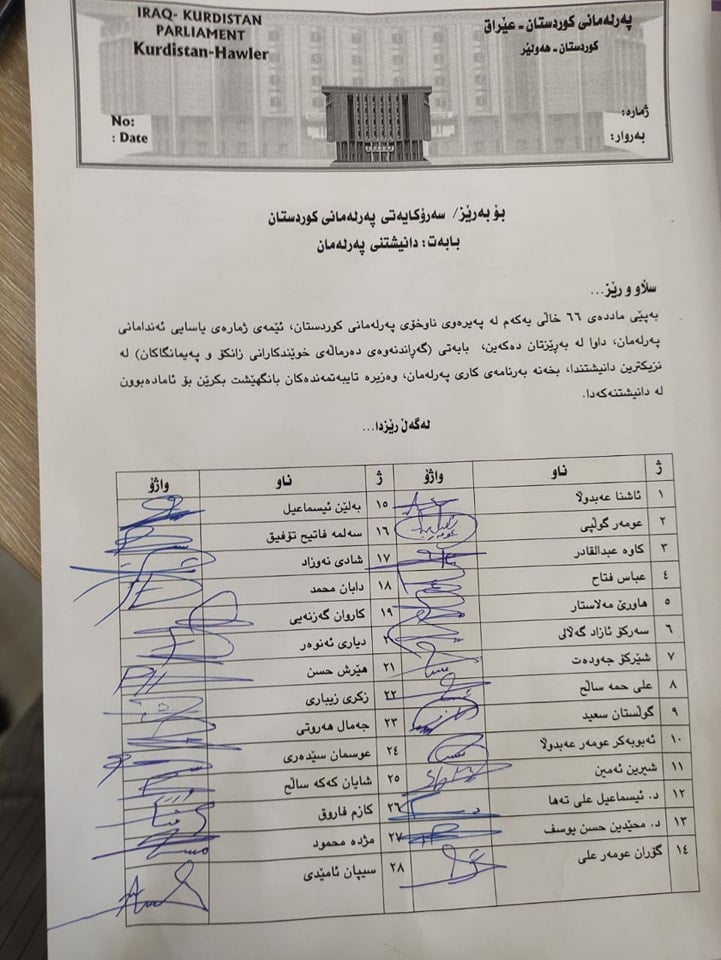 IRAQ- KURDISTAN
PARLIAMENT
Kurdistan-Hawler
No:
: Date
پەرلەمانی کوردستان - عێراق
کوردستان - هەولێر
ژمارە:
بەروار:
بۆ بەرێز/ سەرۆکایەتی پەرلەمانی کوردستان
بابەت: دانیشتنی پەرلەمان
سڵاو و رێز...
بەپێی ماددەی ٦٦ خاڵی یەکەم لە پەیرەوی ناوخۆی پەرلەمانی کوردستان، ئێمەی ژمارەی یاسایی ئەندامانی
پەرلەمان، داوا لە بەڕێزتان دەکەین، بابەتی (گەڕاندنەوەی دەرماڵەی خوێندکارانی زانکۆ و پەیمانگاکان) لە
نزیکترین دانیشتندا، بخەنە بەرنامەی کاری پەرلەمان، وەزیرە تایبەتمەندەکان بانگهێشت بکرێن بۆ ئامادەبوون
لە دانیشتنەکەدا.
لەگەڵ رێزدا...
ژ ناو واژۆ ژ ناو واژۆ
١ ئاشنا عەبدولا ١٥ بەلێن ئیسماعیل
٢ عومەر گوڵپی ١٦ سەلمە فاتیح تۆفیق
٣ کاوە عبدالقادر ١٧ شادی نەوزاد
٤ عباس فتاح ١٨ دابان محمد
٥ هاورێ مەلاستار ١٩ کاروان گەزنەیی
٦ سەرکۆ ئازاد گەلالی ٢ دیاری ئەنوەر
٧ شێرکۆ جەودەت ٢١ هێرش حسن
٨ علی حمە ساڵح ٢٢ زکری زیباری
٩ گوڵستان سعید ٢٣ جەمال هەروتی
١٠ ئەبوبەکر عومەر عەبدولا ٢٤ عوسمان سێدەری
١١ شیرین ئەمین ٢٥ شایان کەکە ساڵح
١٢ د. ئیسماعیل علی تەها ٢٦ کازم فاروق
١٣ د. محێدین حسن یوسف ٢٧ مژدە محمود
١٤ گۆران عومەر علی ٢٨ سیپان ئامێدی